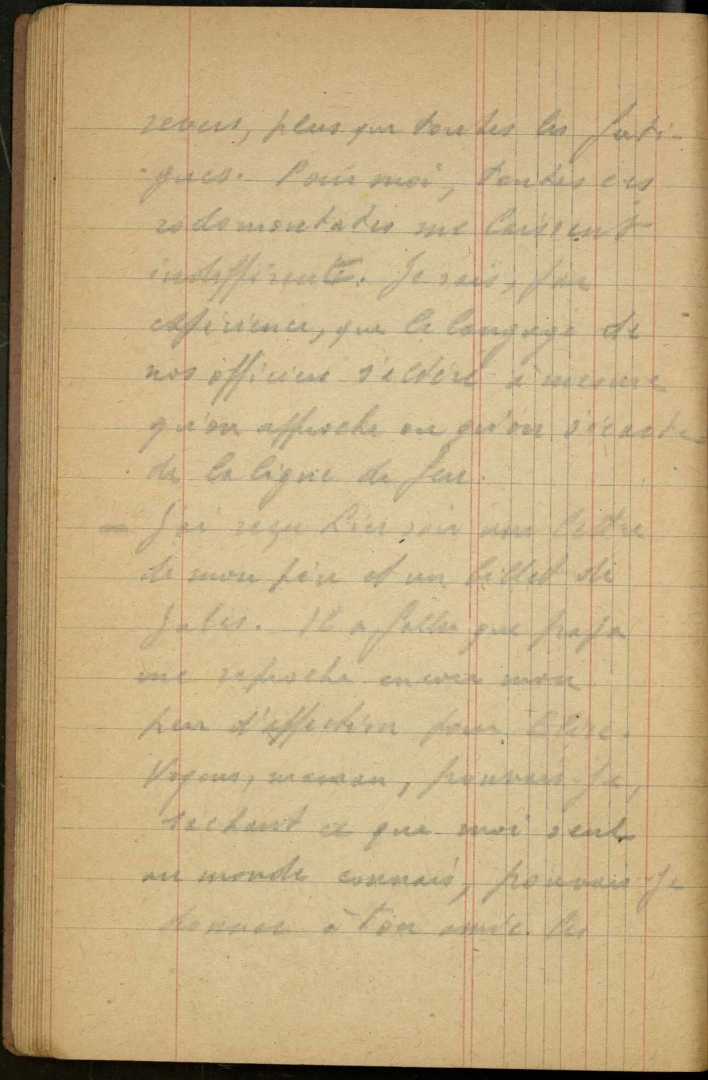 revers, plus que toutes les fati-
gues. Pour moi, toutes ces
rodomontades me laissent
indifférent. Je sais, par
expérience, que le langage de
nos officiers s'altère à mesure
qu'on approche ou qu'on s'écarte
de la ligne de feu.
— J'ai reçu hier soir une lettre
de mon père et un billet de
Jules. Il a fallu que papa
me reproche encore mon
peu d'affection pour Elise.
Voyons, maman, pouvais-je,
sachant ce que moi seul
au monde connais, pouvais-je
donner à ton amie les